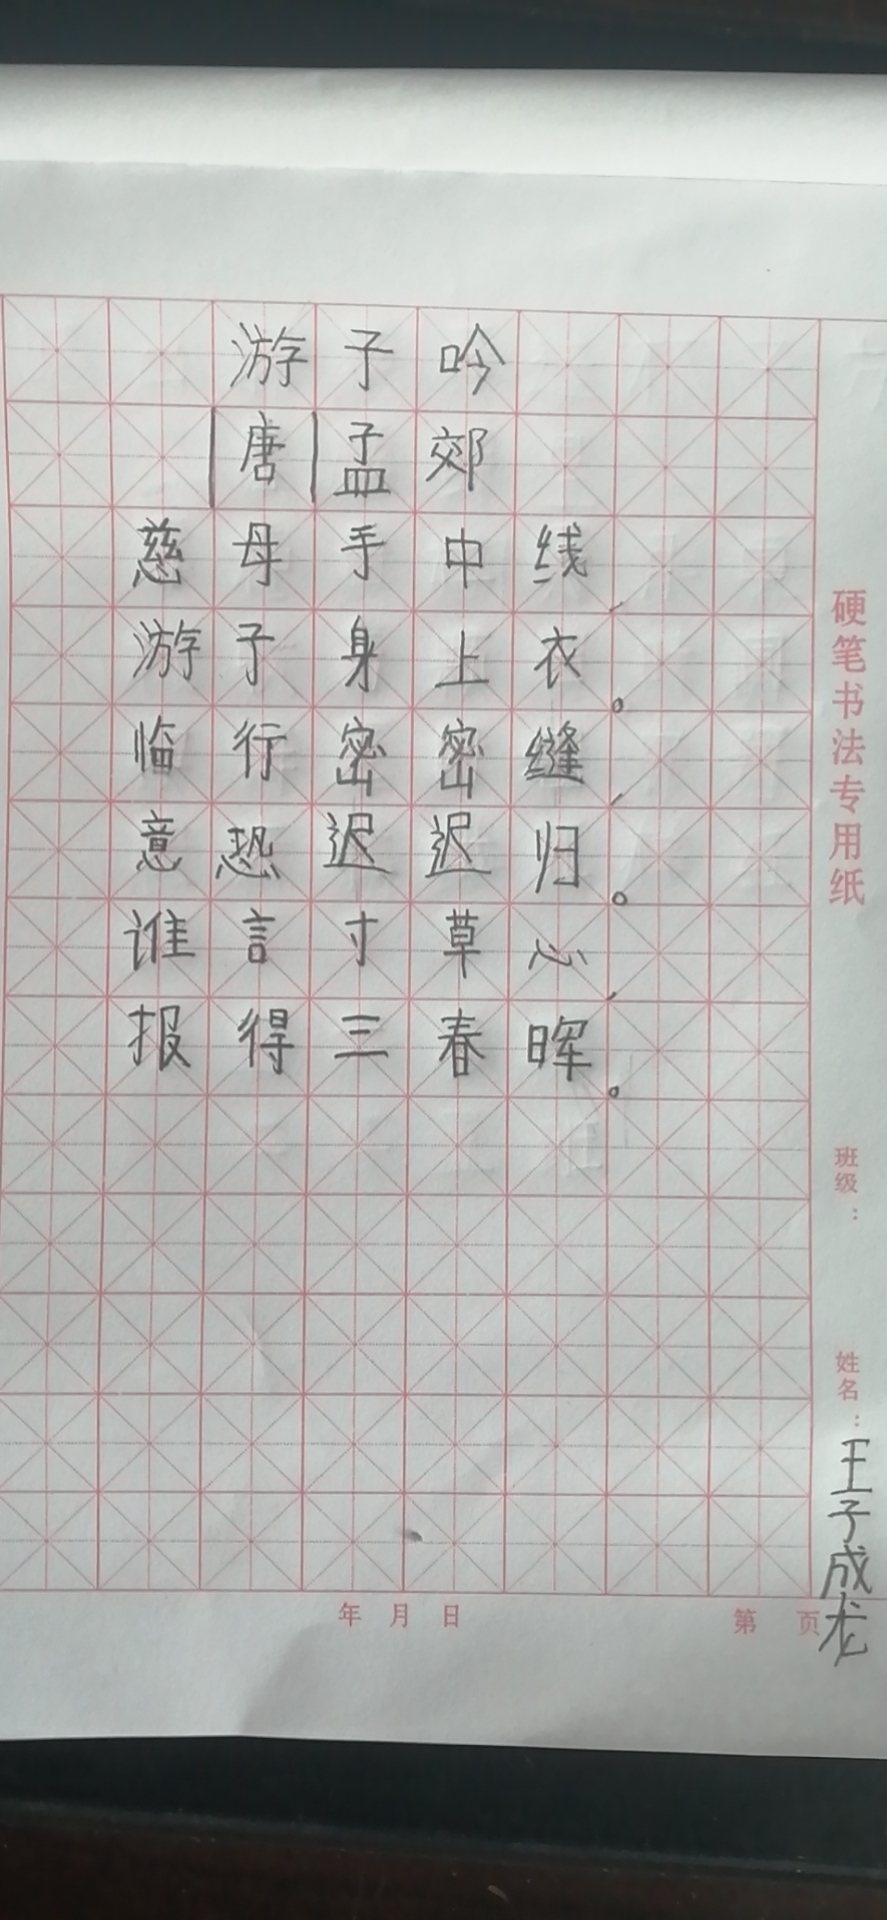 游子吟
|唐|孟郊
慈母手中线,
游子身上衣。
临行密密缝,
意恐迟迟归。
谁言寸草心,
报得三春晖。
硬笔书法专用纸
班级:
姓名:王子成龙
年 月 日
第 页